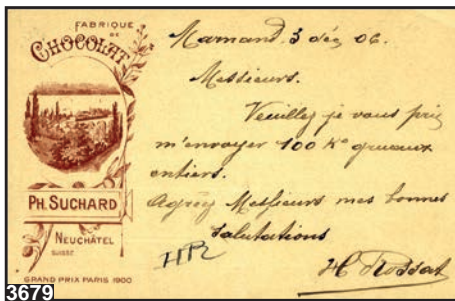 FABRIQUE
DE
CHOCOLAT
PH. SUCHARD
NEUCHÂTEL
SUISSE
GRAND PRIX PARIS 1900
Marnand. 3 déc 06.
Messieurs.
Veuillez je vous prie
m'envoyer 100 Ko gruaux
entiers.
Agréez Messieurs mes bonnes
salutations
H Rossat
3679